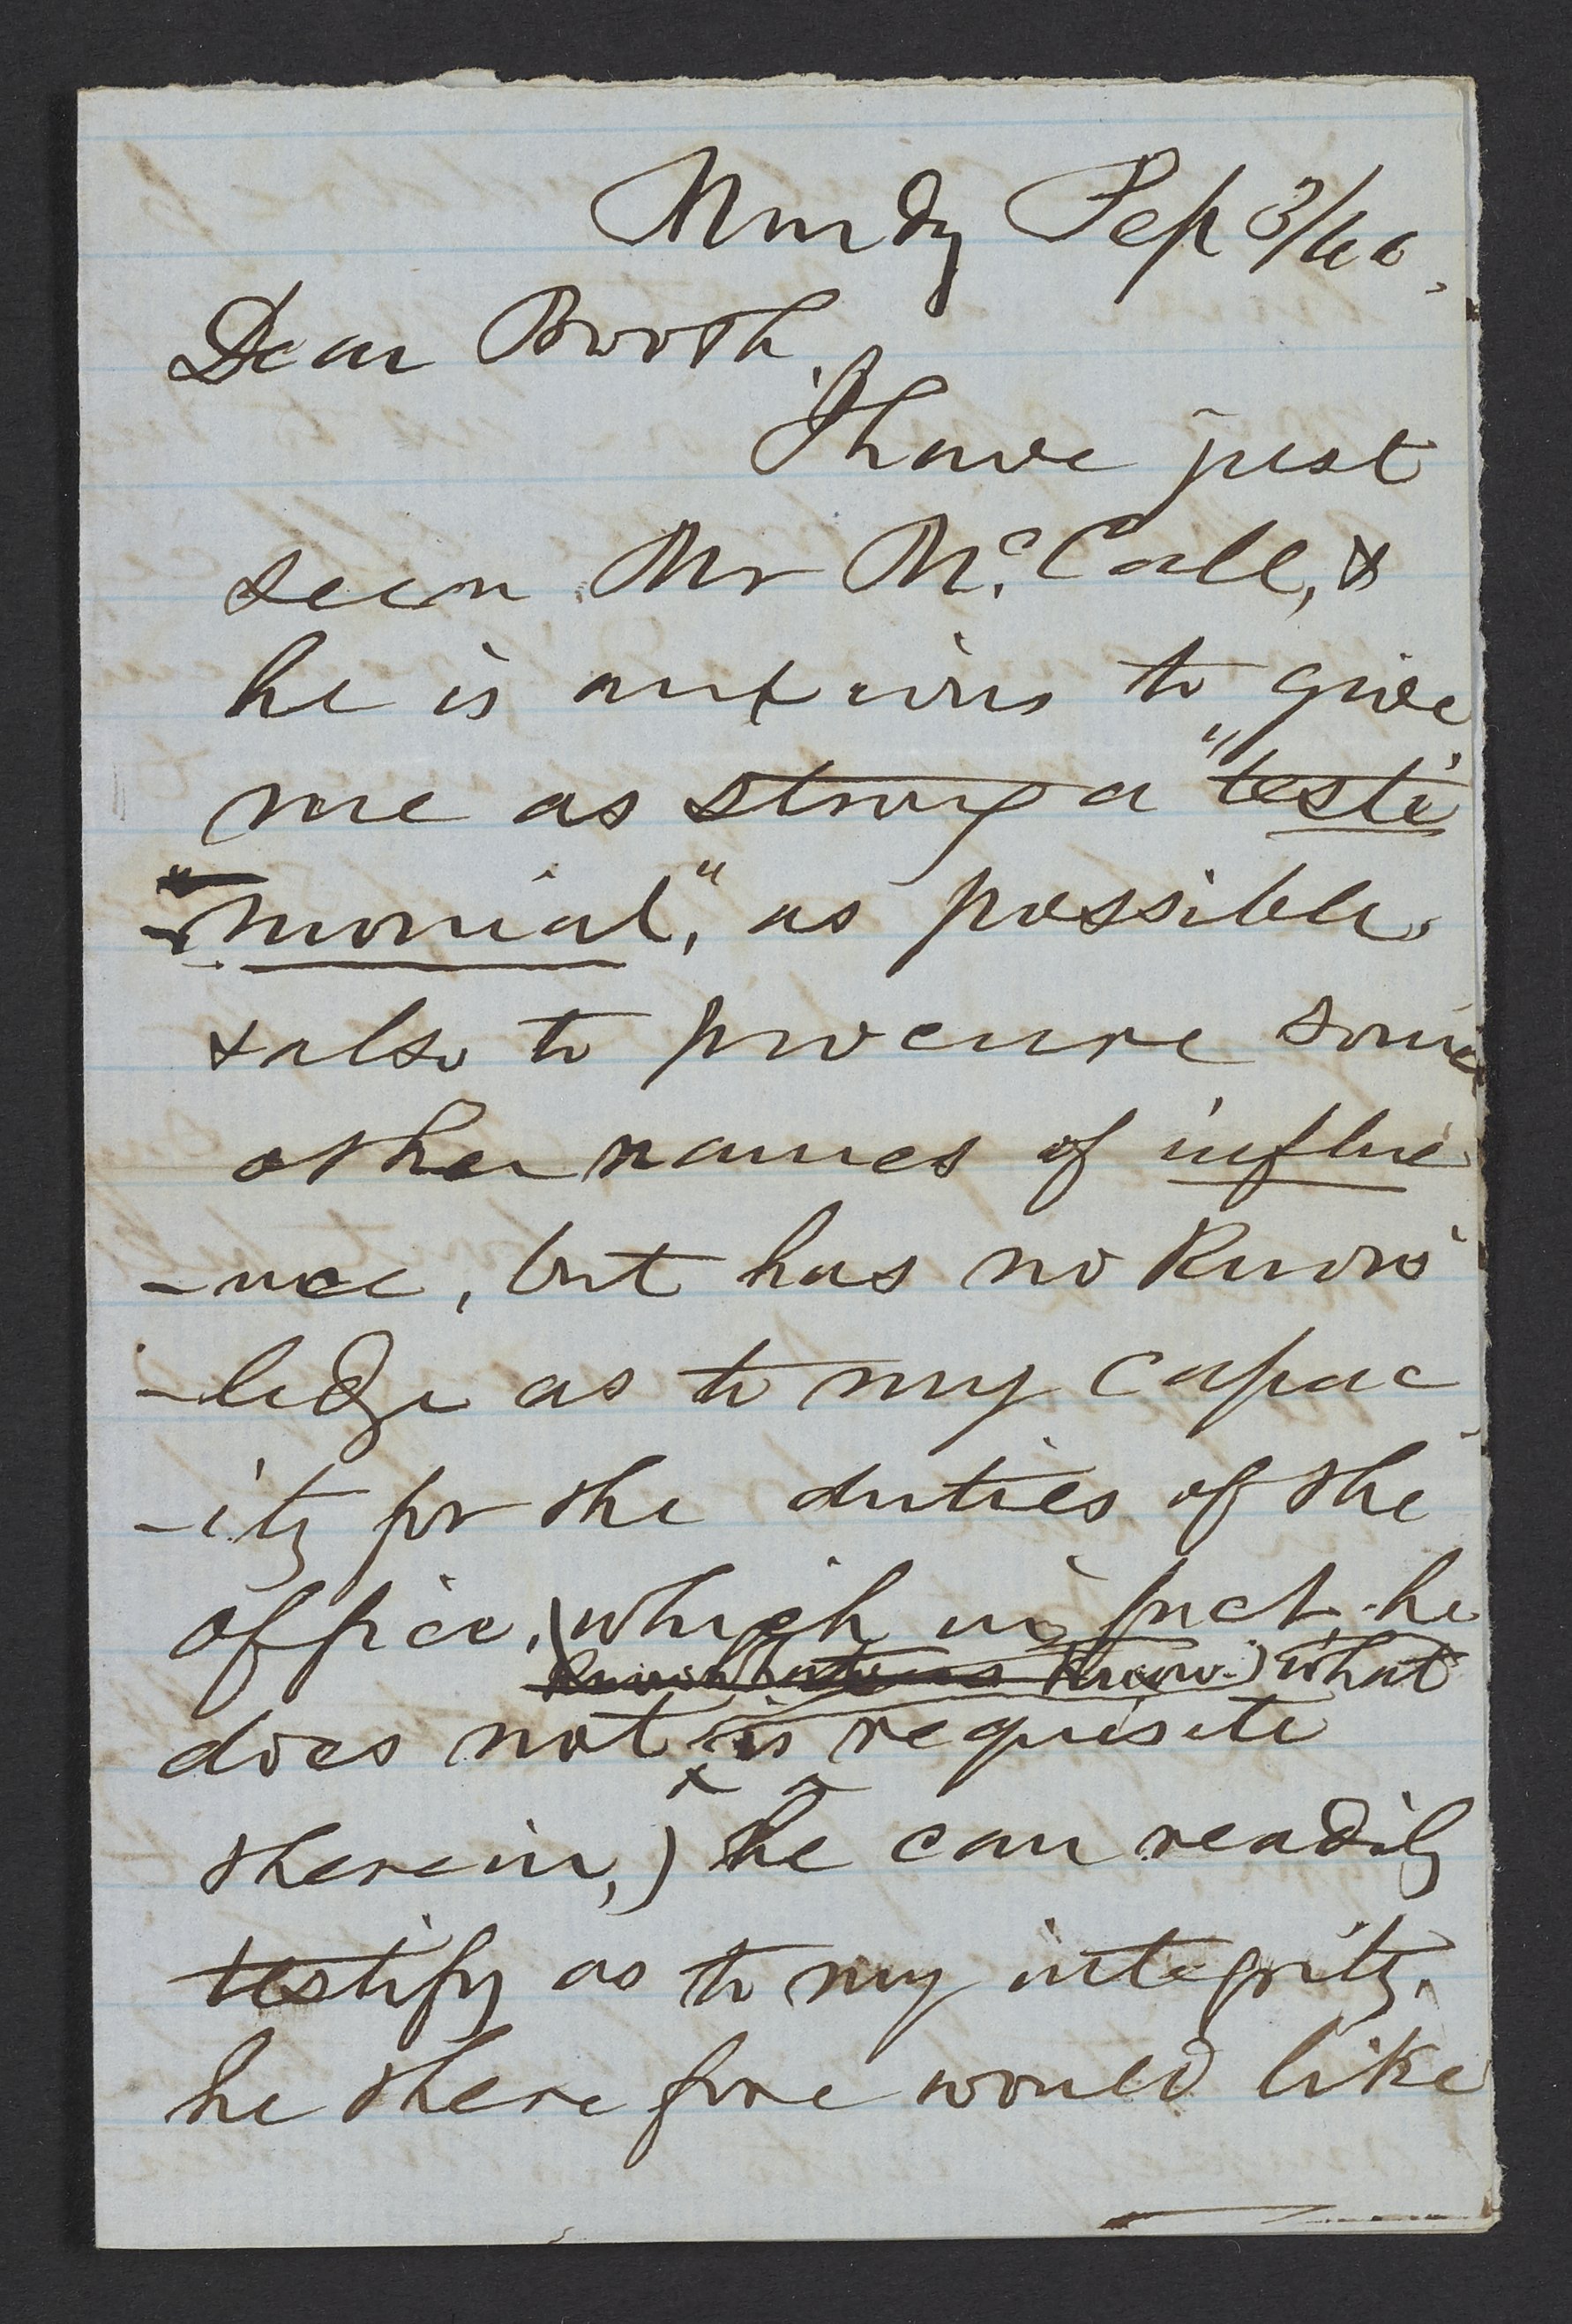 Mondy Sep 3/60.
Dear Booth,
I have just
seen Mr McCall, &
he is anxious to give
me as strong a "testi
"monial," as possible
& also to procure some
other names of influe
-nce, but has no know
-ledge as to my capac
-ity for the duties of the
office, (which in fact, he
know.) what
does not is requisite
therein,) he can readily
testify as to my integrity.
he therefore would like